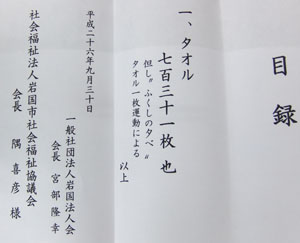 目録
一、タオル
七百三十一枚 也
但し〝ふくしの夕べ〟
タオル一枚運動による
以上
平成二十六年九月三十日
一般社団法人岩国法人会
会長 宮部隆幸
社会福祉法人岩国市社会福祉協議会
会長 隅喜彦様